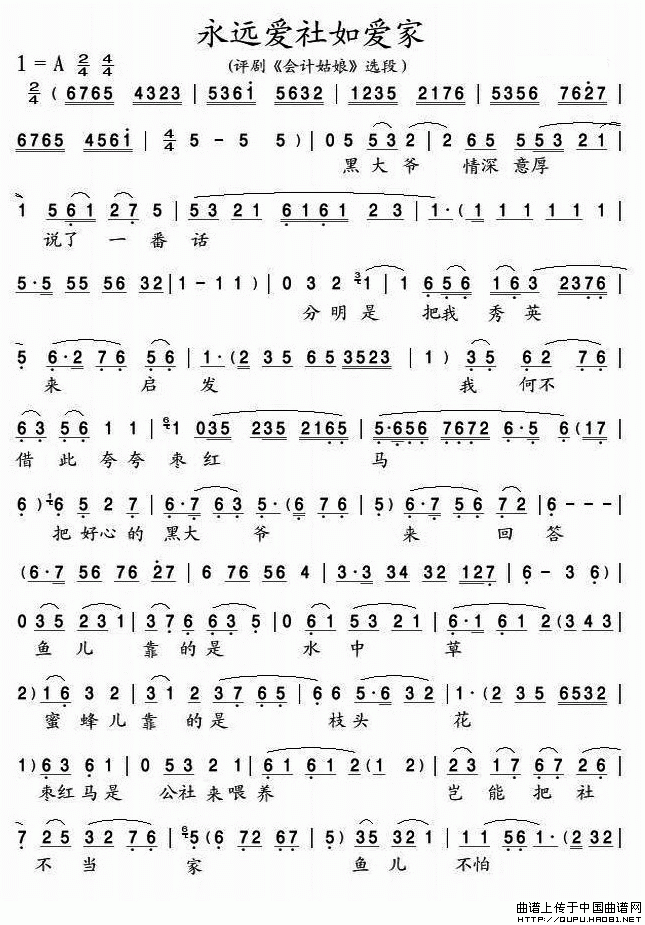 永远爱社如爱家
1=A 2/4 4/4
(评剧《会计姑娘》选段)
2/4 (6765 4323 | 5361 5632 | 1235 2176 | 5356 7627 |
6765 4561 | 4/4 5 - 5 5) | 05 532 | 2 65 553 21 |
黑大爷 情深意厚
1 561 27 5 | 53 21 6161 23 | 1·(1 11 11 1 1 |
说了一番话
5·5 55 56 32 | 1 - 11) | 032 1 | 1 656 163 2376 |
分明是 把我秀英
5 6·2 76 56 | 1·(2 35 65 3523 | 1) 35 62 76 |
来启发 我何不
63 56 1 1 | 1 035 235 2165 | 5·656 7672 6·5 6(17 |
借此夸夸枣红 马
6) 6 5 2 7 | 6·763 5·(6 76 | 5) 6·7 56 72 | 6 - - - |
把好心的黑大爷 来回答
(6·7 56 76 27 | 6 76 56 1 2 | 3·3 34 32 127 | 6 - 3 6) |
035 231 | 376 635 | 0 61 53 21 | 6·1 61 2(3 43 |
鱼儿靠的是水中草
2) 16 32 | 31 2 37 65 | 66 5·6 32 | 1·(2 35 6532 |
蜜蜂儿靠的是枝头花
1) 63 61 | 0 53 21 | 61 61 2(1 2) | 23 27 67 65 |
枣红马是公社来喂养 岂能把社
7 25 32 76 | 5(6 72 67 | 5) 35 321 | 11 56 1·(2 32 |
不当家 鱼儿不怕
曲谱上传于中国曲谱网
HTTP://QUPU.HAO81.NET